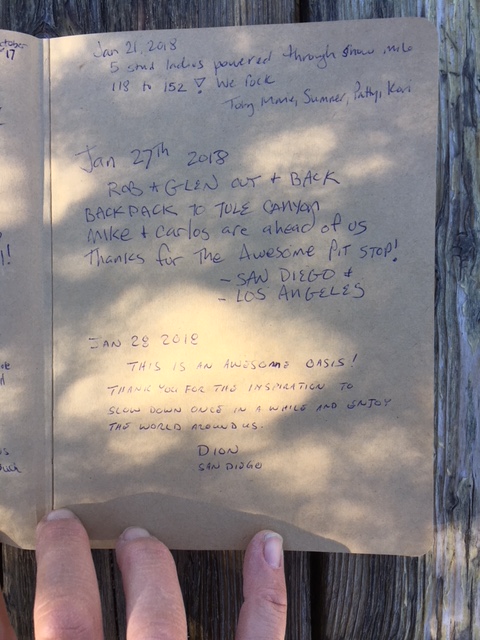 ctober
17
Jan 21, 2018
5 stud ladies powered through snow mile
118 to 152! We rock
Tony Marie, Sumner, Patty, Keri
Jan 27th 2018
ROB + GLEN OUT + BACK
BACKPACK TO TULE CANYON
Mike + Carlos are ahead of us
Thanks for the Awesome Pit STOP!
- SAN DIEGO +
- LOS ANGELES
JAN 28 2018
THIS IS AN AWESOME OASIS!
THANK YOU FOR THE INSPIRATION TO
SLOW DOWN ONCE IN A WHILE AND ENJOY
THE WORLD AROUND US.
DION
SAN DIEGO